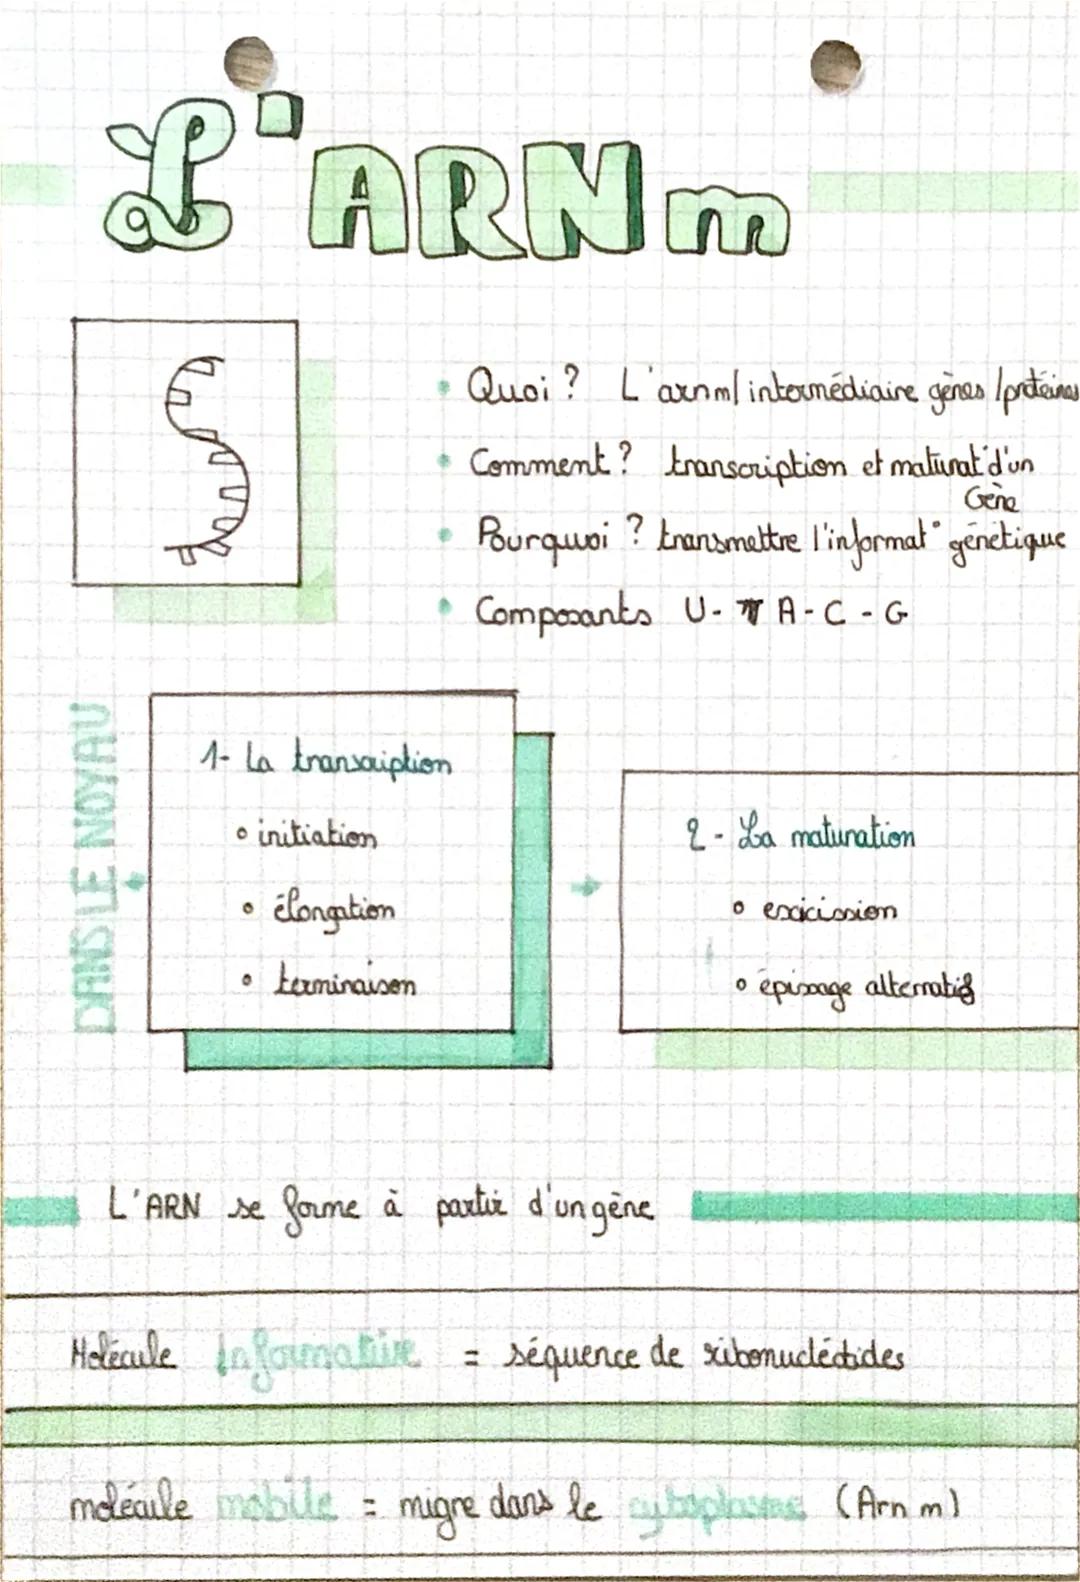 L'ARNm
• Quoi ? L'arnm/ intermédiaire gènes /protéines
• Comment ? transcription et maturat° d'un
Gène
• Pourquoi ? transmettre l'informat° génétique
• Composants U - A - C - G
DANS LE NOYAU
1- La transcription
° initiation
° élongation
° terminaison
2 - La maturation
° exicission
° épissage alternatif
L'ARN se forme à partir d'un gène
Molécule Informative = séquence de ribonucléotides
molécule mobile = migre dans le cytoplasme (Arn m)